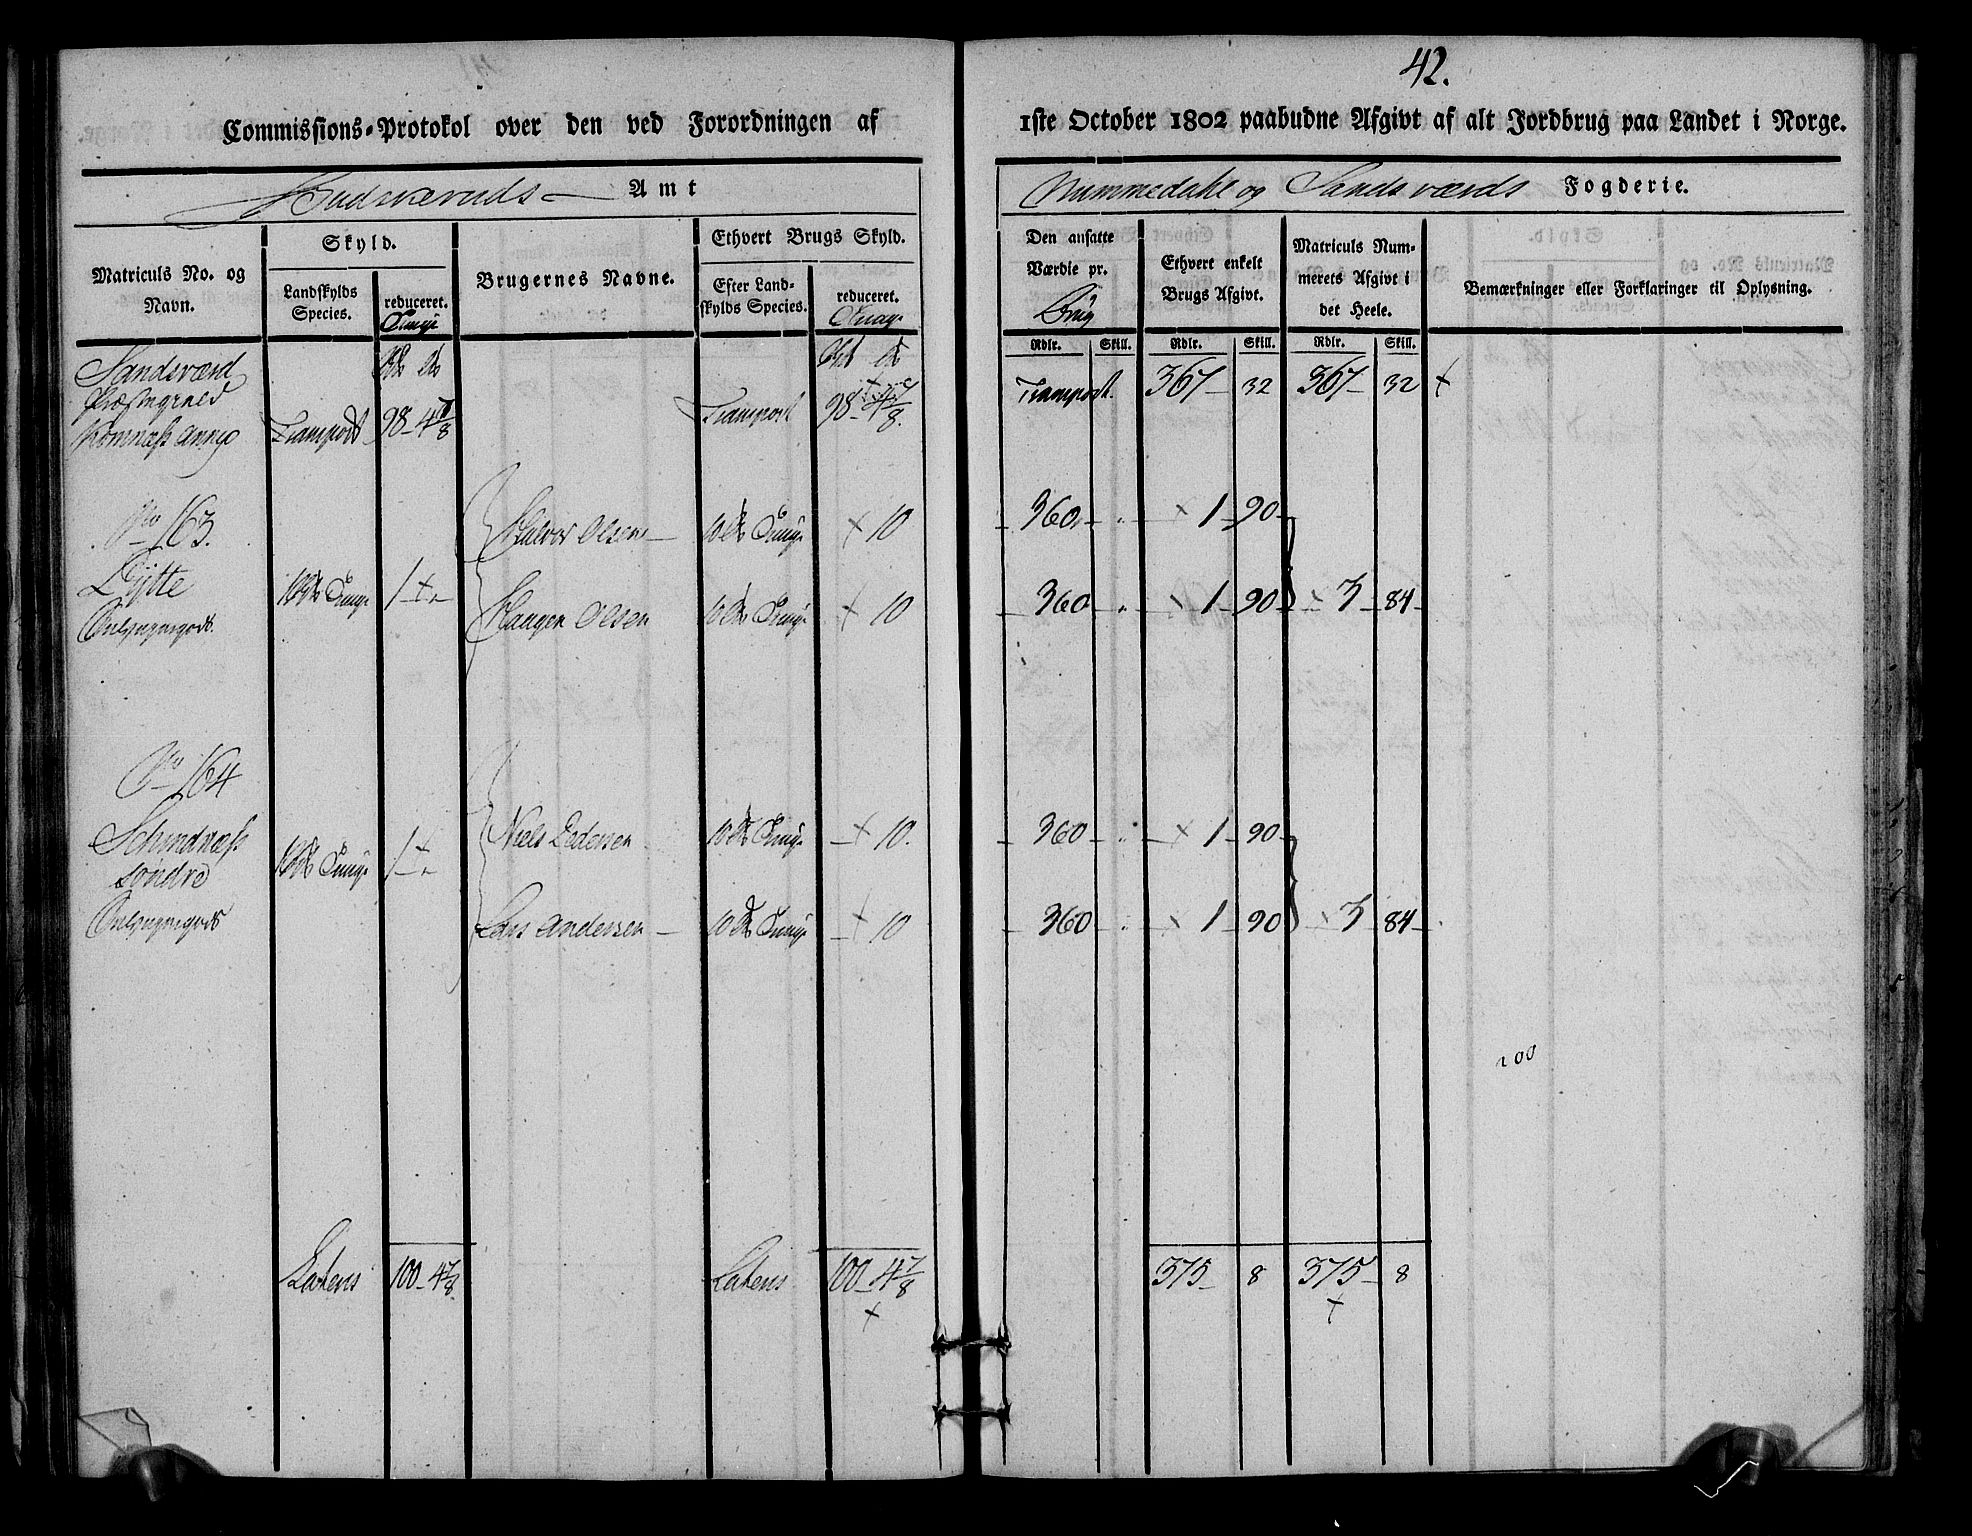 42.
Commissions-Protokol over den ved Forordningen af 1ste October 1802 paabudne Afgivt af alt Jordbrug paa Landet i Norge.
Budskeruds Amt
Nummedahl og Sandsværds Fogderie.
Matriculs No. og Navn.
Skyld.
Landskylds Species.
reduceret.
Tunge
Brugernes Navne.
Ethvert Brugs Skyld.
Efter Landskylds Species.
reduceret.
Tunge
Den ansatte Værdie pr.
Brug
Ethvert enkelt Brugs Afgivt.
Matriculs Nummerets Afgivt i det Heele.
Bemærkninger eller Forklaringer til Oplysning.
Rdlr. Skill. Rdlr. Skill. Rdlr. Skill.
Sandsværd
Præstegield
Komnæss Annex
Transport 98 - 4 7/8 Transport 98 - 4 7/8 Transport. 367 - 32 367 - 32 +
No 163.
Lytte
1 Tunge 1 - "
Halvor Olsen 10 Tunge + 10 360 - " + 1 - 90
Haagen Olsen 10 Tunge + 10 360 " + 1 - 90 + 3 84
No 164
søndre
1 Tunge 1 - "
Niels Pedersen 10 Tunge + 10. 360 - " + 1 - 90
Lars Andersen 10 Tunge + 10 360 - " + 1 90 + 3 84
100
Latens 100 - 4 7/8. Latens 100 - 4 7/8 375 - 8 375 - 8
+ +